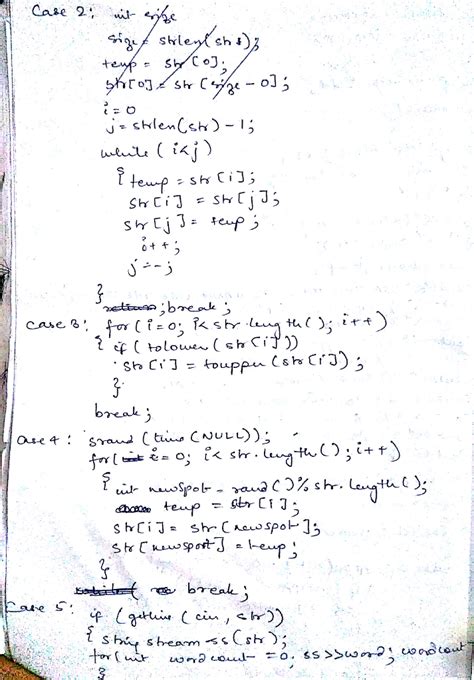 Case 2: int size
size = strlen(str);
temp = str[0];
str[0] = str[size - 0];
i = 0
j = strlen(str) - 1;
while (i<j)
{ temp = str[i];
str[i] = str[j];
str[j] = temp;
i++;
j--;
}
return; break;
case 3: for (i=0; i< str.length(); i++)
{ if (tolower (str[i]))
str[i] = toupper (str[i]);
}
break;
Case 4: srand (time (NULL));
for(int i = 0; i< str.length(); i++)
{ int newspot = rand()% str.length();
temp = str[i];
str[i] = str[newspot];
str[newspot] = temp;
}
break;
Case 5:
if (getline (cin, str))
{ string stream ss(str);
for(int word count = 0; ss>>word; wordcount
{